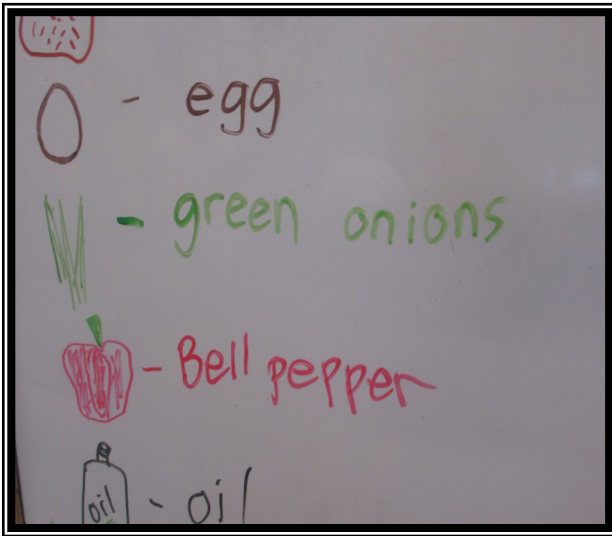 - egg
- green onions
- Bell pepper
oil - oil